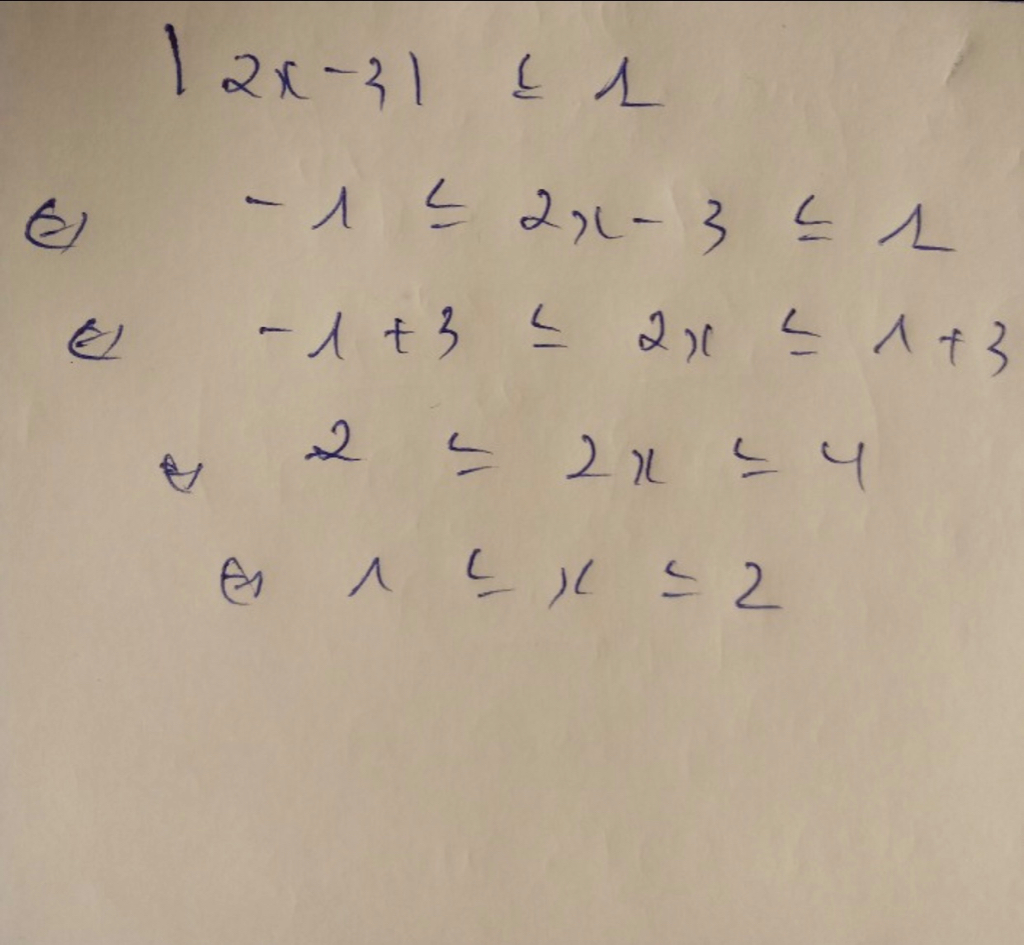 |2x-3| ≤ 1
⇔ -1 ≤ 2x-3 ≤ 1
⇔ -1+3 ≤ 2x ≤ 1+3
⇔ 2 ≤ 2x ≤ 4
⇔ 1 ≤ x ≤ 2